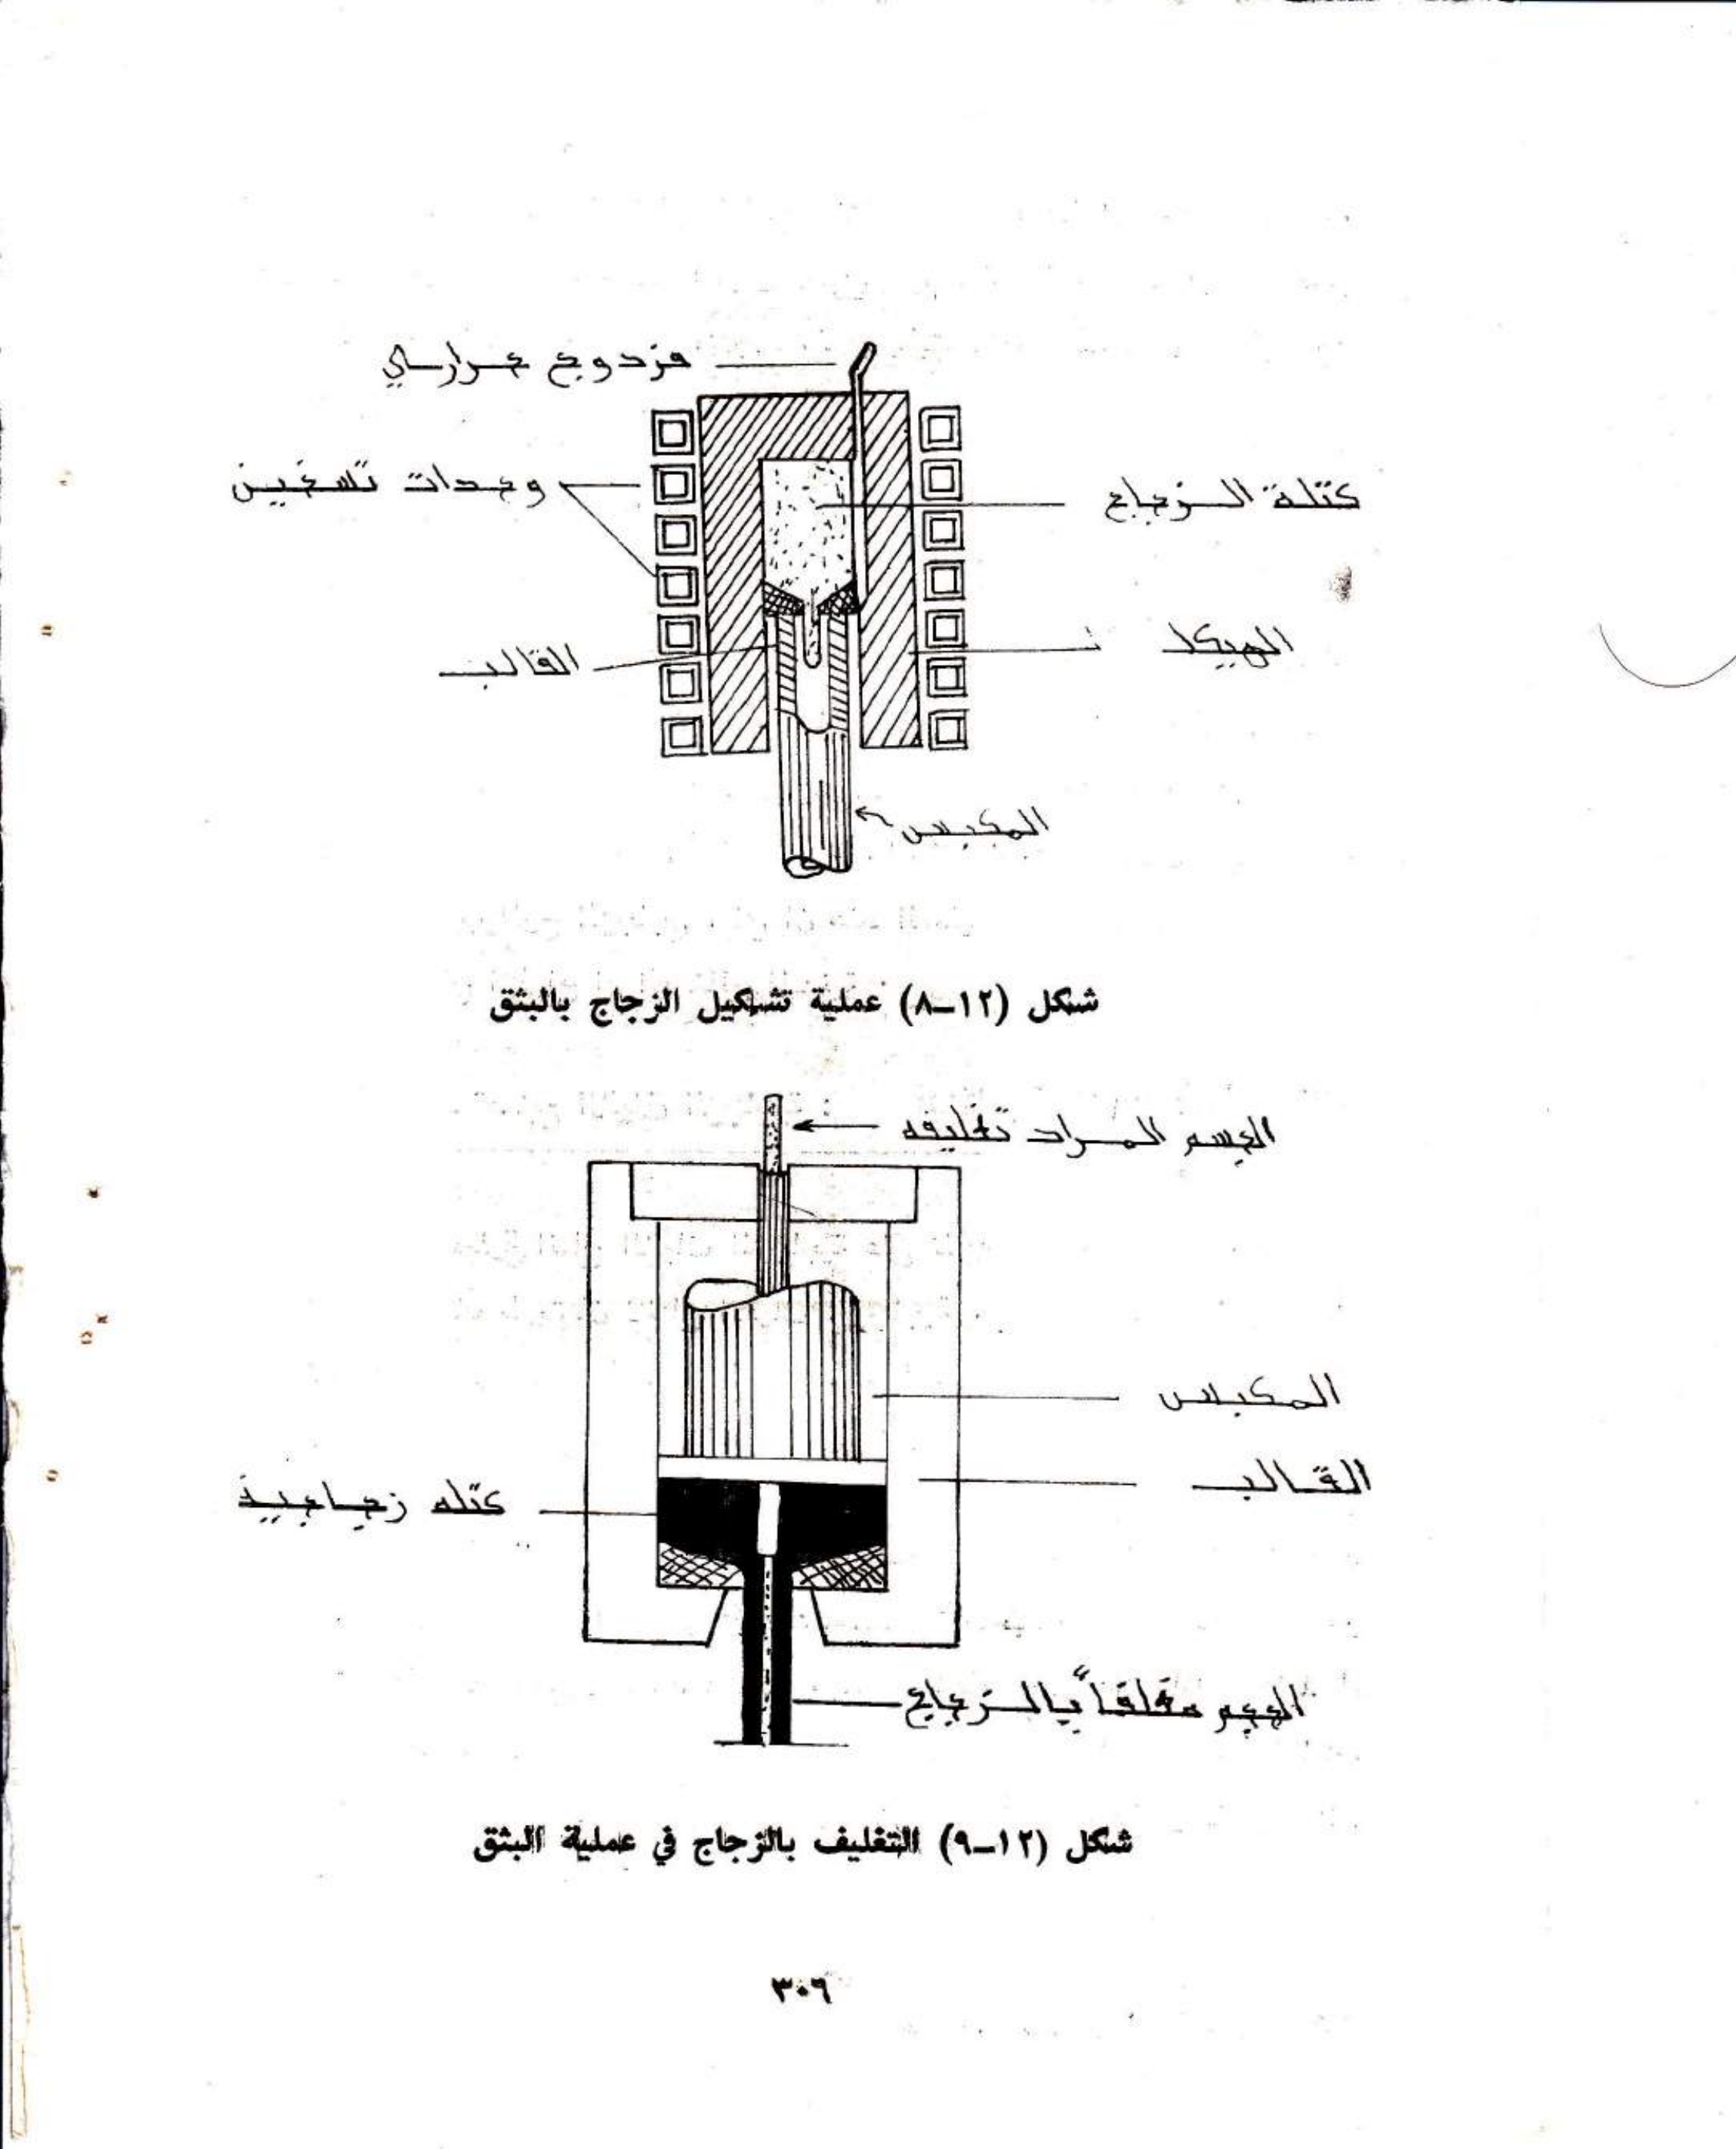 مزدوج حراري
وحدات تسخين
كتلة الزجاج
الهيكل
القالب
المكبس
شكل (١٢–٨) عملية تشكيل الزجاج بالبثق
الجسم المراد تغليفه
المكبس
القالب
كتله زجاجية
بالزجاج
شكل (١٢–٩) التغليف بالزجاج في عملية البثق
٣٠٦